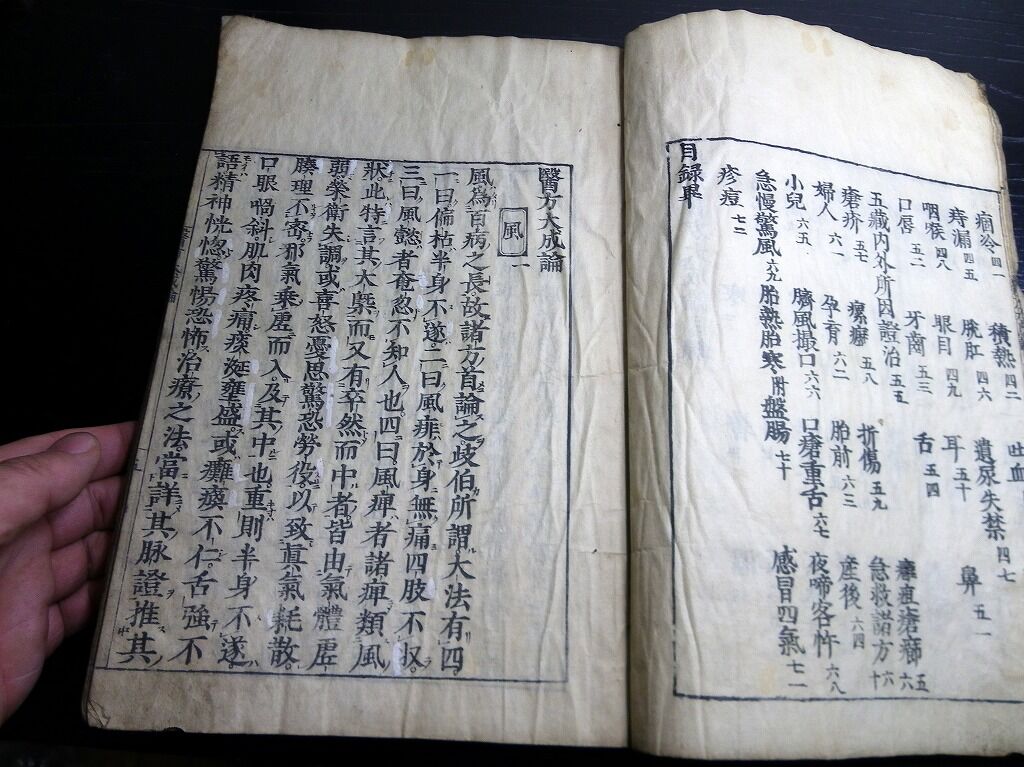 痼冷四一 積熱四二 吐血
痔漏四五 脱肛四六 遺尿失禁四七
咽喉四八 眼目四九 耳五十 鼻五一
口唇五二 牙歯五三 舌五四
五藏内外所因證治五五 癰疽瘡癤五六
瘡疥五七 瘰癧五八 折傷五九 急救諸方六十
婦人六一 孕育六二 胎前六三 産後六四
小兒六五 臍風撮口六六 口瘡重舌六七 夜啼客忤六八
急慢驚風六九 胎熱胎寒附盤腸七十 感冒四氣七一
疹痘七二
目録畢
醫方大成論
風一
風爲百病之長故諸方首論之岐伯所謂大法有四
一曰偏枯半身不遂二曰風痱於身無痛四肢不収
三曰風懿者奄忽不知人也四曰風痺者諸痺類風
狀此特言其大槩而又有卒然而中者皆由氣體虗
弱榮衛失調或喜怒憂思驚恐勞役以致眞氣耗散
腠理不密邪氣乗虗而入及其中也重則半身不遂
口眼喎斜肌肉疼痛痰涎壅盛或癱瘓不仁舌強不
語精神恍惚驚惕恐怖治療之法當詳其脉證推其